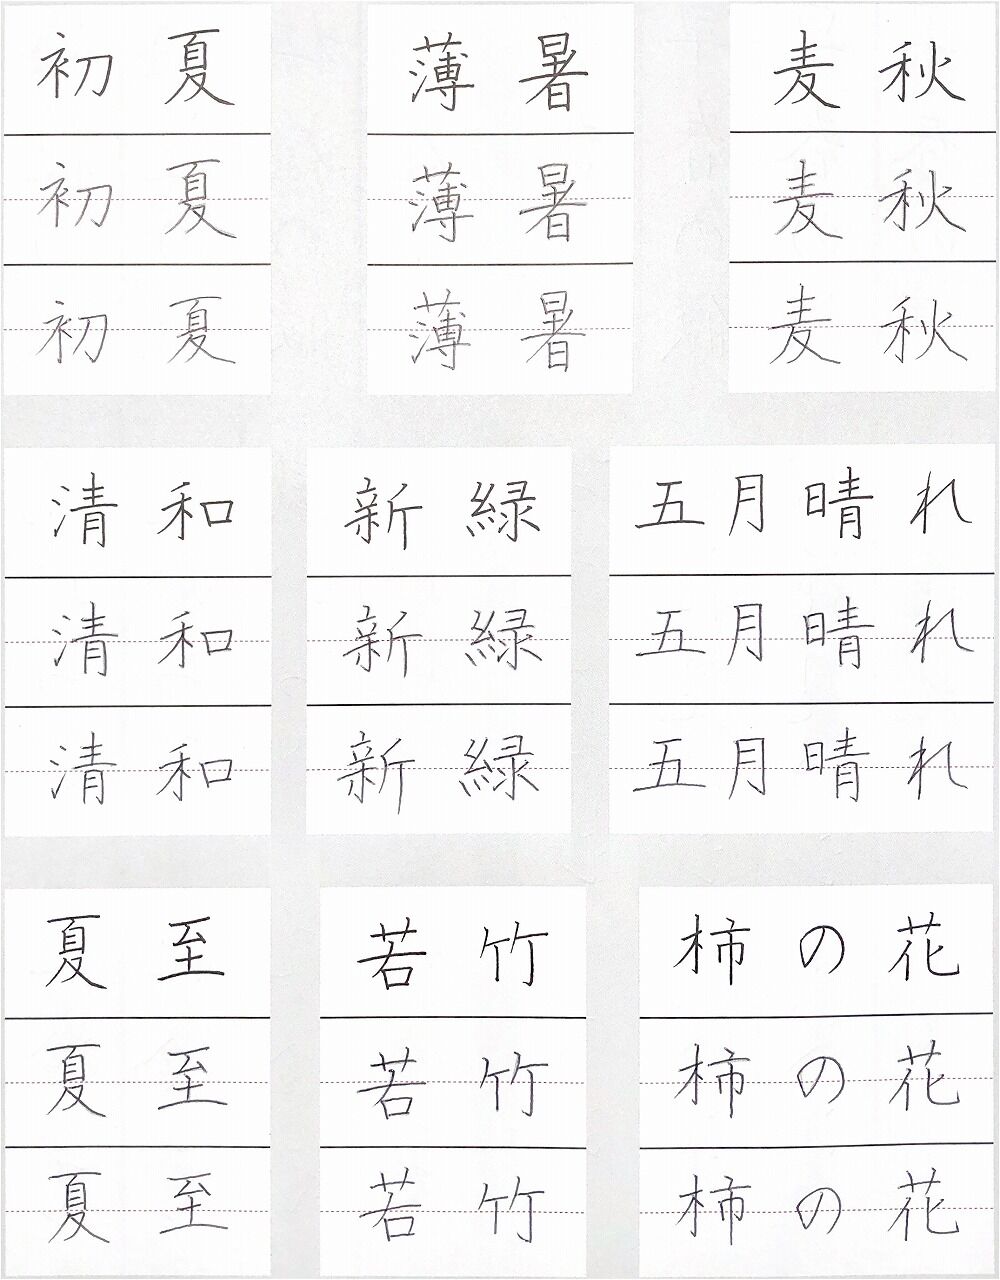 初夏
初夏
初夏
薄暑
薄暑
薄暑
麦秋
麦秋
麦秋
清和
清和
清和
新緑
新緑
新緑
五月晴れ
五月晴れ
五月晴れ
夏至
夏至
夏至
若竹
若竹
若竹
柿の花
柿の花
柿の花